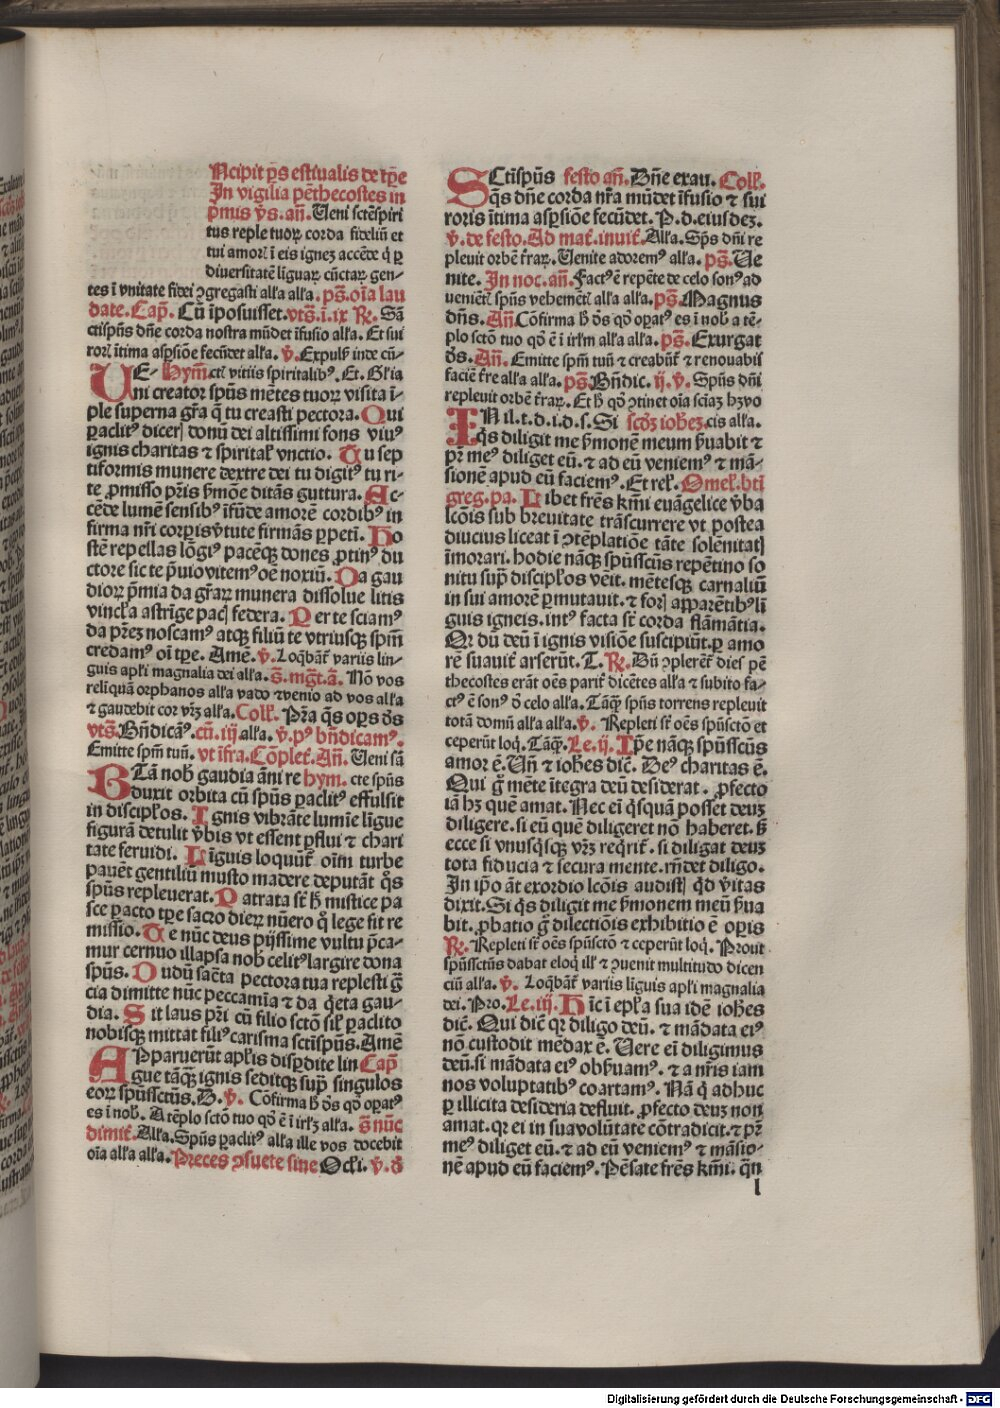 Ncipit ꝑs estiualis de tꝑe
In vigilia pēthecostes in
pͥmis ℣s. añ. Ueni sctēspiri
tus reple tuoꝝ corda fideliū et
tui amorꝭ ī eis ignez accēde q̄ ꝑ
diuersitatē līguaꝝ cūctaꝝ gen⸗
tes ī vnitate fidei ꝯgregasti alľa alľa. ps̄. oīa lau
date. Cap̄. Cū īposuisset. vts̄. ī. ix ℟. Sā
ctispūs dñe corda nostra mūdet īfusio alľa. Et sui
rorꝭ ītima aspsiōe fecūdet alľa. ℣. Expulsꝰ inde cū⸗
UE⸗ Hym̄. cti vitiis spiritalibꝰ. Et. Gľia
ni creator spūs mētes tuoꝝ visita ī⸗
ple superna gr̄a q̄ tu creasti pectora. Qui
ꝑaclitꝰ dicerꝭ donū dei altissimi fons viuꝰ
ignis charitas ⁊ spiritaľ vnctio. Tu sep
tiformis munere dextre dei tu digitꝰ tu ri⸗
te ꝓmisso pr̄is ẜmōe ditās guttura. Ac⸗
cēde lumē sensibꝰ īfūde amorē cordibꝰ in
firma nr̄i corꝑis v̓tute firmās ꝑpeti. Ho
stē repellas lōgiꝰ pacēqꝫ dones ꝓtinꝰ du
ctore sic te p̄uio vitemꝰ oē noxiū. Da gau
dioꝝ p̄mia da gr̄aꝝ munera dissolue litis
vincľa astrīge pacꝭ federa. Per te sciamꝰ
da pr̄ez noscamꝰ atqꝫ filiū te vtriusqꝫ spm̄
credamꝰ oī tꝑe. Amē. ℣. Loq̄bāt̄ variis lin⸗
guis apľi magnalia dei alľa. s̄. mgt̄. ā. Nō vos
relīquā orphanos alľa vado ⁊ venio ad vos alľa
⁊ gaudebit cor vr̄ꝫ alľa. Colľ. Pr̄a q̄s oꝑs ds̄
vts̄. Bn̄dicāꝰ. cū. iij alľa. ℣. pꝰ bn̄dicamꝰ.
Emitte spm̄ tuū. vt īfra. Cōplet̄. Añ. Ueni sā
BTā nob̄ gaudia āni re hym. cte spūs
duxit orbita cū spūs ꝑaclitꝰ effulsit
in discipľos. Ignis vibrāte lumīe līgue
figurā detulit v̓bis vt essent ꝓflui ⁊ chari
tate feruidi. Līguis loquūt̄ oīm turbe
pauēt gentiliū musto madere deputāt q̄s
spūs repleuerat. Patrata sť h̄ mistice pa
sce ꝑacto tꝑe sacro dieꝝ nūero q̄ lege fit re
missio. Te nūc deus pijssime vultu p̄ca⸗
mur cernuo illapsa nob̄ celitꝰ largire dona
spūs. Dudū sac̄ta pectora tua replesti g̃
cia dimitte nūc peccamīa ⁊ da q̄eta gau⸗
dia. Sit laus pr̄i cū filio sctō siľ ꝑaclito
nobisqꝫ mittat filiꝰ carisma sctīspūs. Amē
APparuerūt apľis disꝑdite lin Cap̄
gue tāqꝫ ignis seditqꝫ supꝭ singulos
eoꝝ spūssctūs. D. ℣. Cōfirma h̄ ds̄ qd̄ oꝑatꝰ
es ī nob̄. A tēplo sctō tuo qd̄ ē ī irľꝫ alľa. s̄ nūc
dimit̄. Alľa. Spūs ꝑaclitꝰ alľa ille vos docebit
oīa alľa alľa. Preces ꝯsuete sine Ocľi. ℣. ds̄
SCtīspūs festo añ. Dñe exau. Colľ.
q̄s dñe corda nr̄a mūdet īfusio ⁊ sui
roris ītima aspsiōe fecūdet. P. d. eiusdeꝫ.
℣. de festo. Ad mat̄. inuit̄. Alľa. Sp̄s dñi re
pleuit orbē t̄raꝝ. Uenite adoremꝰ alľa. ps̄. Ue
nite. In noc. añ. Factꝰ ē repēte de celo sonꝰ ad
ueniētꝭ spūs vehemētꝭ alľa alľa. ps̄. Magnus
dñs. Añ Cōfirma h̄ ds̄ qd̄ oꝑatꝰ es ī nob̄ a tē⸗
plo sctō tuo qd̄ ē ī irľm alľa alľa. ps̄. Exurgat
ds̄. Añ. Emitte spm̄ tuū ⁊ creabūt̄ ⁊ renouabis
faciē t̄re alľa alľa. ps̄. Bn̄dic. ij. ℣. Spūs dñi
repleuit orbē t̄raꝝ. Et h̄ qd̄ ꝯtinet oīa sciaꝫ hꝫ vo
IN il. t. d. i. d. s. Si scd̄ꝫ iohēꝫ. cis alľa.
q̄s diligit me ẜmonē meum ẜuabit ⁊
pr̄ meꝰ diliget eū. ⁊ ad eū veniemꝰ ⁊ mā⸗
sionē apud eū faciemꝰ. Et reľ. Omeľ. bt̄i
greg. pa. Libet frēs kmi̅ euāgelice v̓ba
lcōis sub breuitate trāscurrere vt postea
diucius liceat ī ꝯtēplatiōe tāte solēnitatꝭ
īmorari. hodie nāqꝫ spūssctūs repētino so
nitu supꝭ discipľos vēit. mētesqꝫ carnaliū
in sui amorē ꝑmutauit. ⁊ forꝭ apparētibꝰ lī
guis igneis. intꝰ facta sť corda flāmātia.
Qr dū deū ī ignis visiōe suscipiūt. ꝑ amo
rē suauit̄ arserūt. T. ℟. Dū ꝯplerēt̄ dies pē
thecostes erāt oēs parit̄ dicētes alľa ⁊ subito fa⸗
ctꝰ ē sonꝰ d̄ celo alľa. Tāqꝫ spūs torrens repleuit
totā domū alľa alľa. ℣. Repleti sť oēs spūsctō et
ceperūt loq̄. Tāqꝫ. Le. ij. Ipse nāqꝫ spūssctūs
amor ē. Uñ ⁊ iohēs dic̄. Deꝰ charitas ē.
Qui g̃ mēte ītegra deū desiderat. ꝓfecto
iā hꝫ quē amat. Nec ei̅ q̄squā posset deuꝫ
diligere. si eū quē diligeret nō haberet. ẜꝫ
ecce si vnusq̄sqꝫ vr̄ꝫ reqͥrit̄. si diligat deuꝫ
tota fiducia ⁊ secura mente. rn̄det diligo.
In ip̄o āt exordio lcōis audistꝭ qd̄ v̓itas
dixit. Si q̄s diligit me ẜmonem meū ẜua
bit. ꝓbatio g̃ dilectiōis exhibitio ē oꝑis
℟. Repleti sť oēs spūsctō ⁊ ceperūt loq̄. Prout
spūssctūs dabat eloq̄ illꝭ ⁊ ꝯuenit multitudo dicen
ciū alľa. ℣. Loq̄bāt̄ variis līguis apľi magnalia
dei. Pro. Le. iij. Hīc ī epľa sua idē iohēs
dic̄. Qui dic̄ qr diligo deū. ⁊ mādata eiꝰ
nō custodit mēdax ē. Uere ei̅ diligimus
deū. si mādata eiꝰ obẜuamꝰ. ⁊ a nr̄is iam
nos voluptatibꝰ coartamꝰ. Nā q̄ adhuc
ꝑ illicita desideria defluit. ꝓfecto deuꝫ non
amat. qr ei in sua volūtate cōtradicit. ⁊ pr̄
meꝰ diliget eū. ⁊ ad eū veniemꝰ ⁊ māsio⸗
nē apud eū faciemꝰ. Pēsate frēs kmi̅. q̄n
l
Digitalisierung gefördert durch die Deutsche Forschungsgemeinschaft - DFG